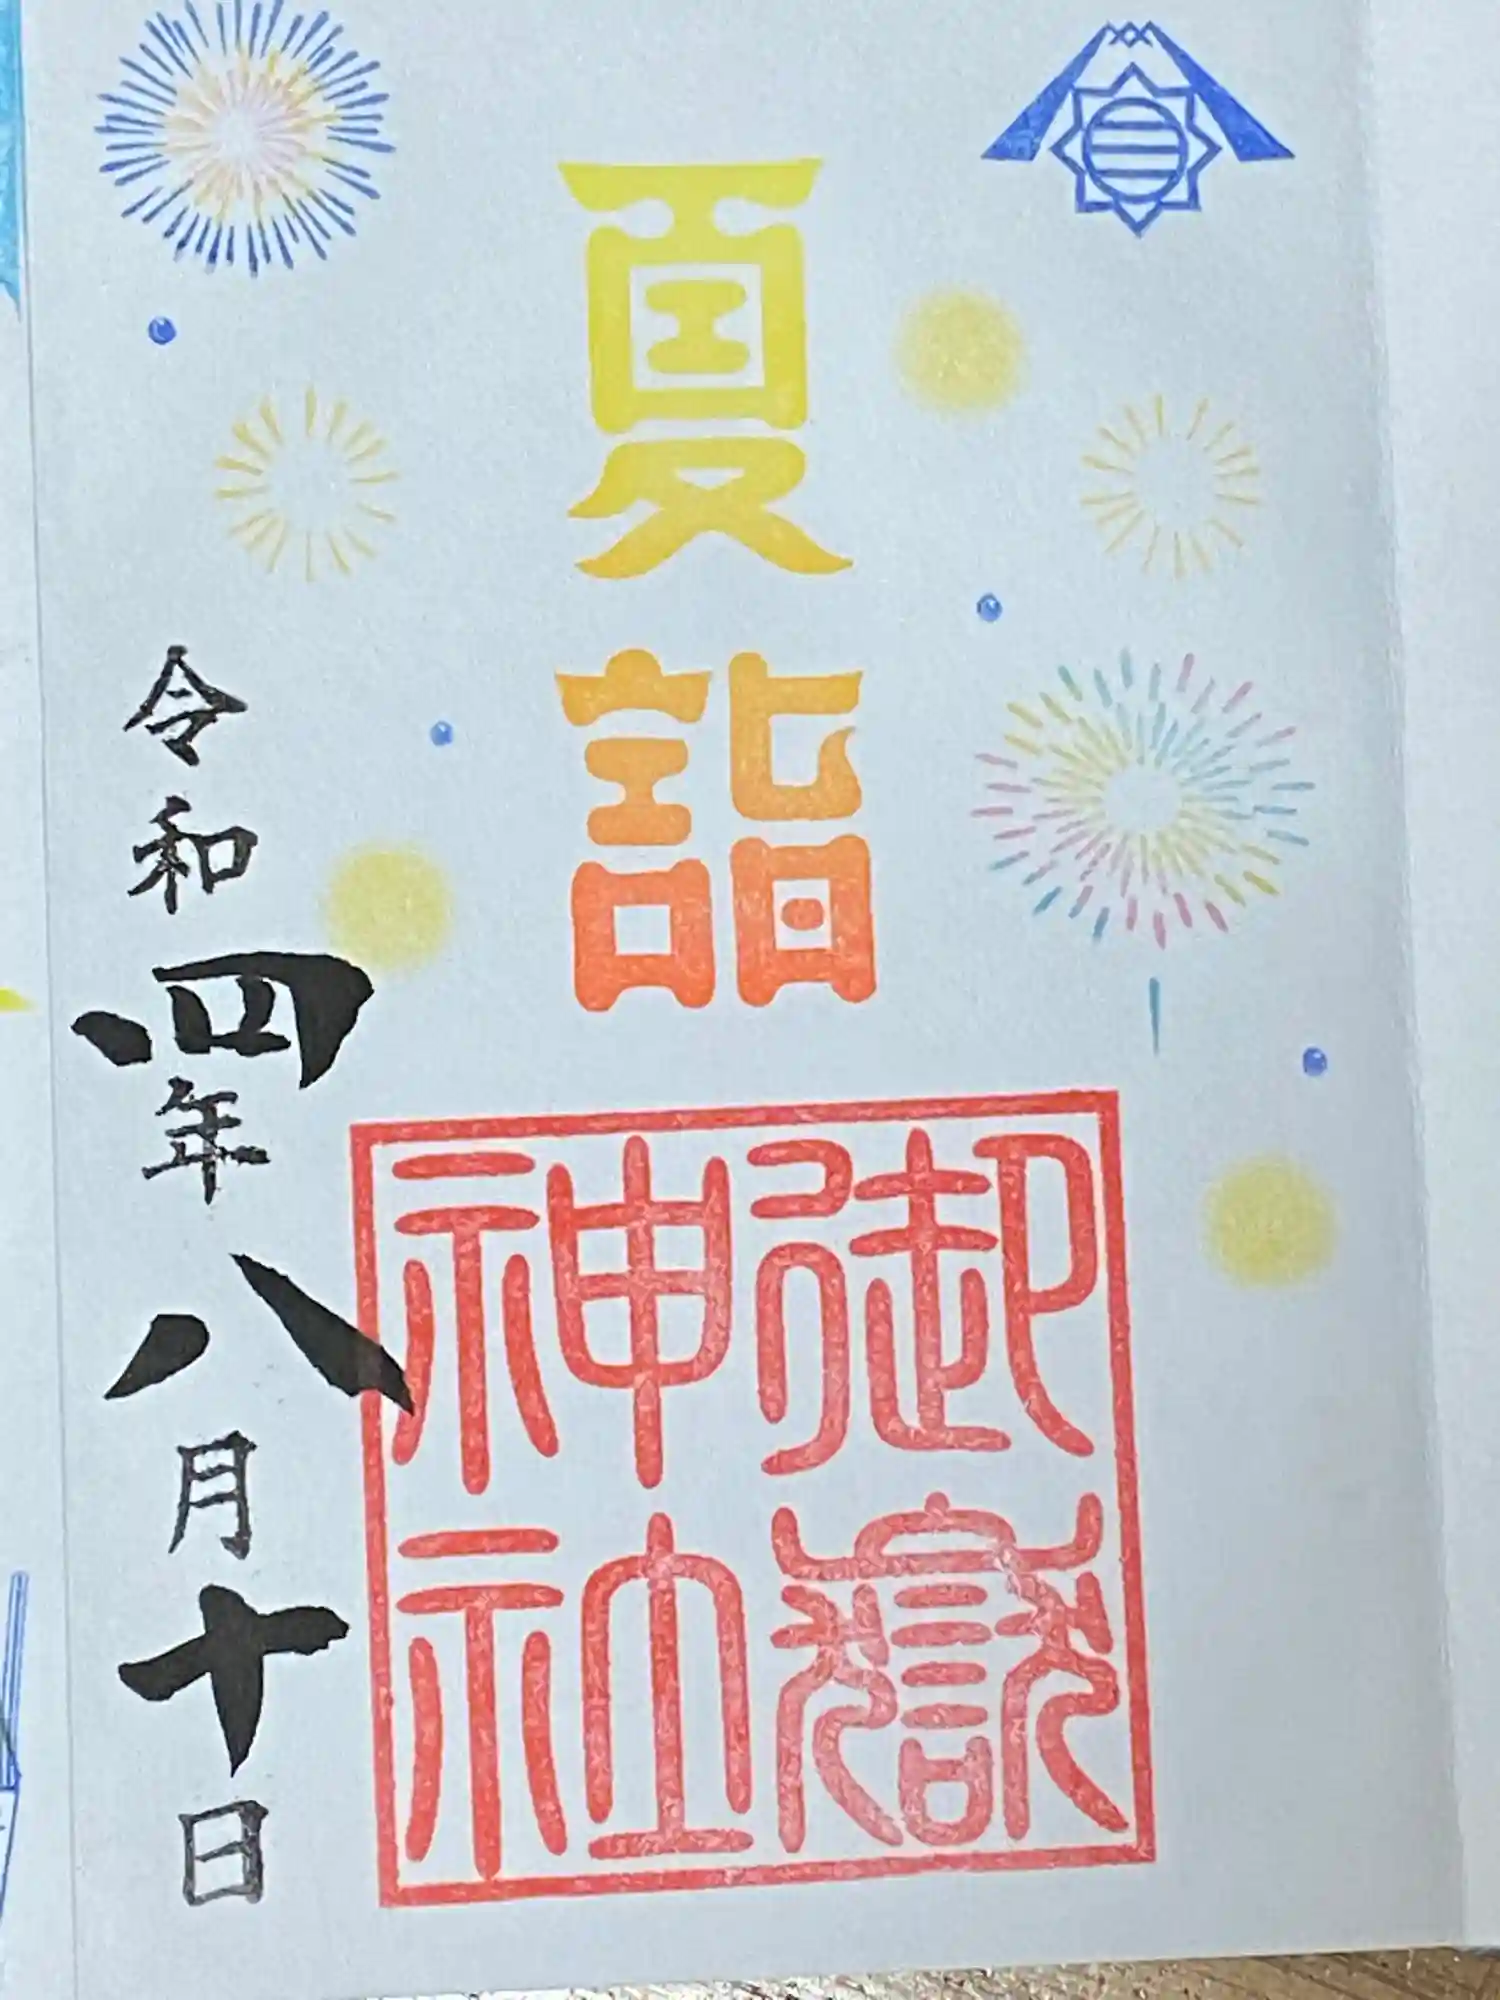 夏詣
御嶽
神社
令和四年八月十日